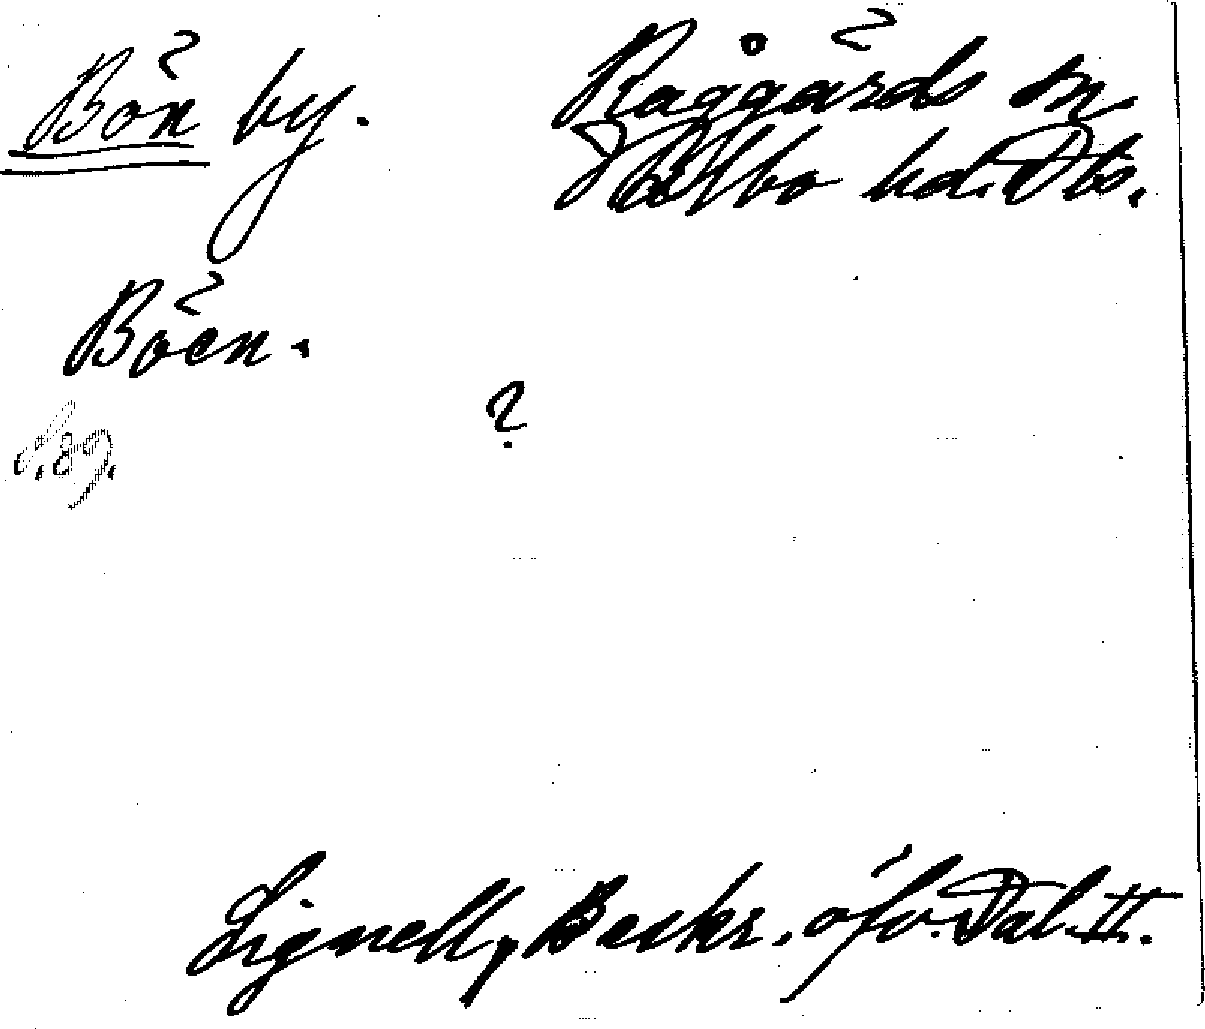 Bön by. Råggärds sn.
Valbo hd. Dls.
Böen.
?
s. 89.
Lignell, Beskr. öfv. Dal. II.